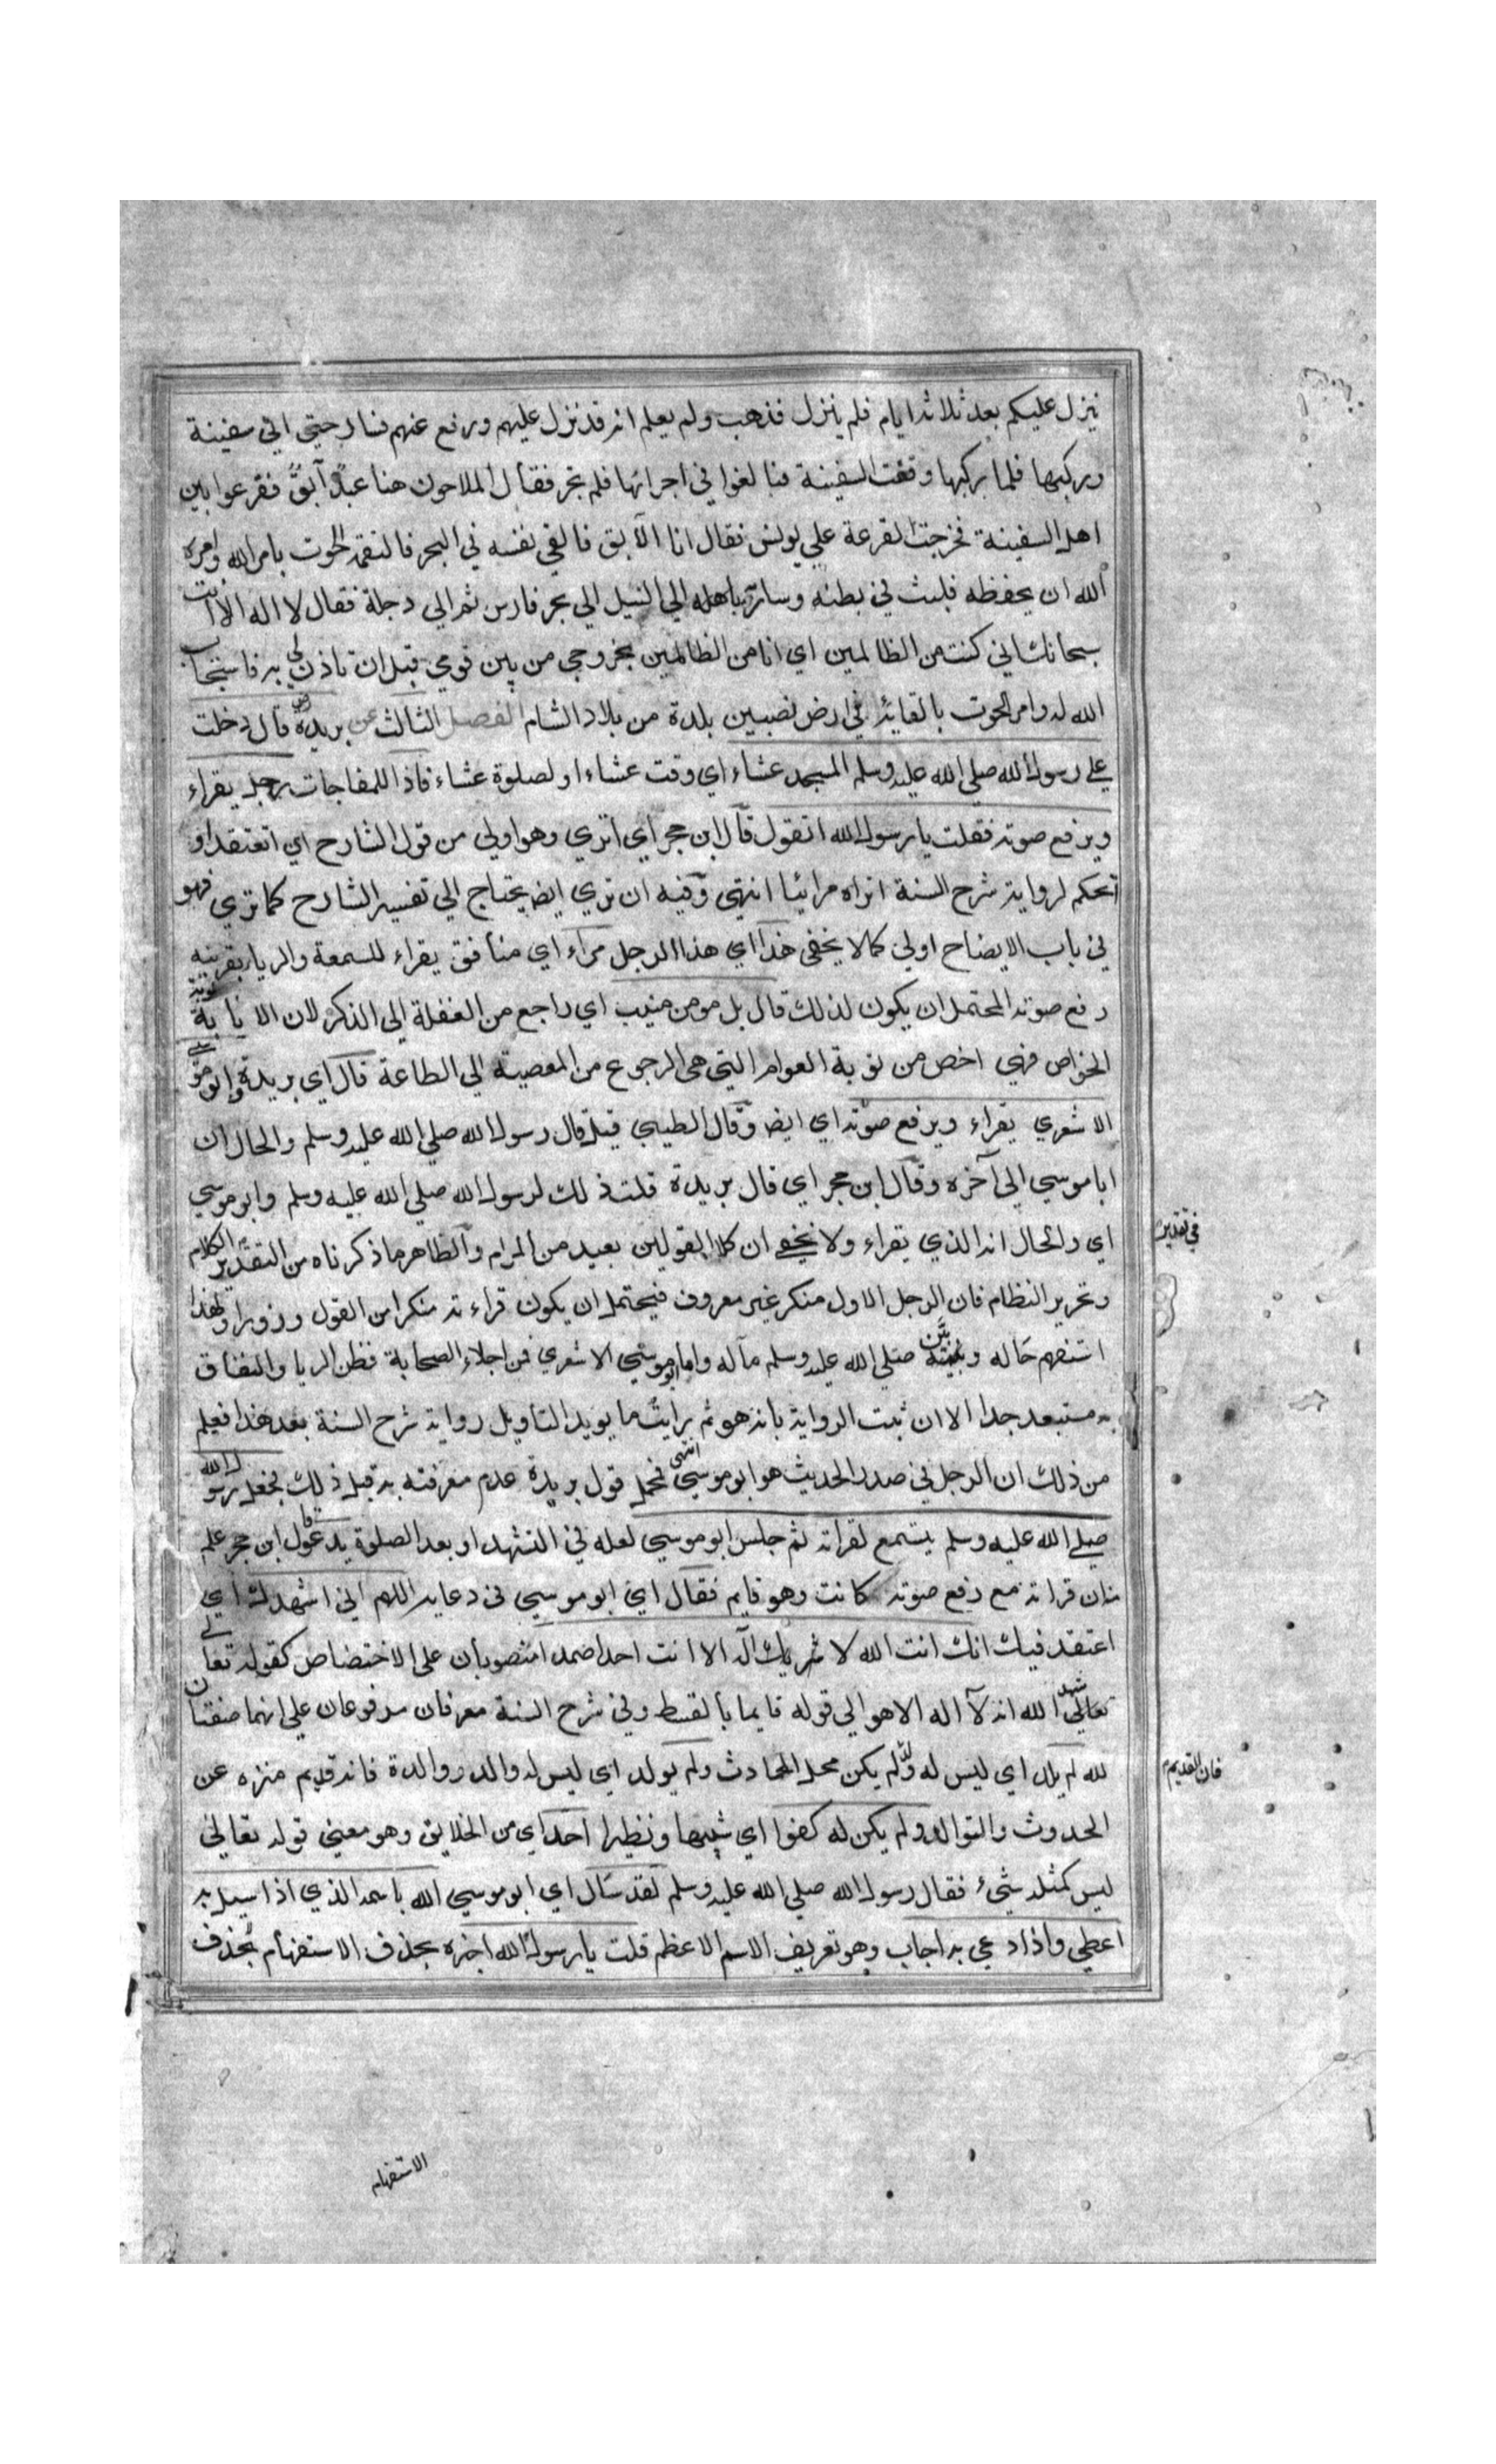 ينزل عليكم بعد ثلاثة ايام فلم ينزل فذهب ولم يعلم انه قد نزل عليهم ورفع عنهم فسار حتى اتى سفينة
وركبها فلما ركبها وقفت السفينة فبالغوا في اجرائها فلم تجر فقال الملاحون هنا عبد آبق فقرعوا بين
اهل السفينة فخرجت القرعة علي يونس فقال انا الآبق فالقي نفسه في البحر فالتقمه الحوت بامر الله وامره
الله ان يحفظه فلبث في بطنه وسار به الي النيل الي بحر فارس ثم الي دجلة فقال لا اله الا انت
سبحانك اني كنت من الظالمين اي انا من الظالمين بخروجي من بين قومي قبل ان تاذن لي به فاستجاب
الله له وامر الحوت بالقائه في ارض نصيبين بلدة من بلاد الشام الفصل الثالث عن بريدة رض قال دخلت
علي رسول الله صلي الله عليه وسلم المسجد عشاء اي وقت عشاء او لصلوة عشاء فاذا للمفاجات رجل يقراء
ويرفع صوته فقلت يا رسول الله اتقول قال ابن حجر اي اتري وهو اولي من قول الشارح اي اتعتقد او
تحكم لرواية شرح السنة اتراه مرائيا انتهى وفيه ان تري ايضا يحتاج الي تفسير الشارح كما تري فهو
في باب الايضاح اولي كما لا يخفى هذا اي هذا الرجل مراء اي منافق يقراء للسمعة والريا بقرينة
رفع صوته المحتمل ان يكون لذلك قال بل مومن منيب اي راجع من الغفلة الي الذكر لان الانابة توبة
الخواص فهي اخص من توبة العوام التي هى الرجوع من المعصية الي الطاعة قال اي بريدة وابو موسي
الاشعري يقراء ويرفع صوته اي ايضا وقال الطيبي قيل قال رسول الله صلي الله عليه وسلم والحال ان
ابا موسي الي آخره وقال ابن حجر اي قال بريدة قلت ذلك لرسول الله صلي الله عليه وسلم وابو موسي
اي والحال انه الذي يقراء ولا يخفي ان كلا القولين بعيد من المرام والظاهر ما ذكرناه من التقدير الكلام
في تقدير
وتحرير النظام فان الرجل الاول منكر غير معروف فيحتمل ان يكون قراءته منكرا من القول وزورا ولهذا
استفهم حاله وبين صلي الله عليه وسلم مآله واما ابو موسي الاشعري فمن اجلاء الصحابة فظن الريا والنفاق
به مستبعد جدا الا ان ثبت الرواية بانه هو ثم رايت ما يويد التاويل رواية شرح السنة بعد هذا فعلم
من ذلك ان الرجل في صدر الحديث هو ابو موسي انتهى فحمل قول بريدة عدم معرفته به قبل ذلك فجعل رسول الله
صلي الله عليه وسلم يتسمع لقراته ثم جلس ابو موسي لعله في التشهد او بعد الصلوة يدعو قول ابن حجر علم
منه ان قراته مع رفع صوته كانت وهو قايم فقال اي ابو موسي في دعايه اللهم اني اشهدك اي
اعتقد فيك انك انت الله لا شريك اله الا انت احدا صمدا منصوبان على الاختصاص كقوله تعالي
تعالي شهد الله انه لا اله الا هو الي قوله قايما بالقسط وفي شرح السنة معرفان مرفوعان علي انهما صفتان
لله لم يلد اي ليس له ولد لم يكن محل الحادث ولم يولد اي ليس له والد ووالدة فانه قديم منزه عن
فان القديم
الحدوث والتوالد ولم يكن له كفوا اي شبيها ونظيرا احد اي من الخلايق وهو معنى قوله تعالي
ليس كمثله شيء فقال رسول الله صلي الله عليه وسلم لقد سال اي ابو موسي الله باسمه الذي اذا سيل به
اعطي واذا دعي به اجاب وهو تعريف الاسم الاعظم قلت يا رسول الله اخبره بحذف الاستفهام بحذف
الاستفهام